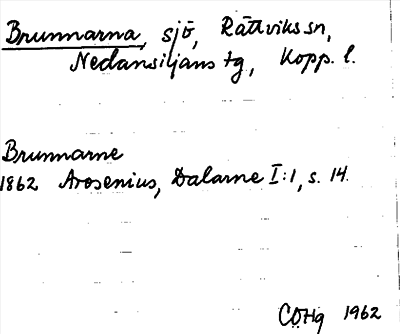 Brunnarna, sjö, Rättviks sn,
Nedansiljans tg, Kopp. l.
Brunnarne
1862 Arosenius, Dalarne I:1, s. 14.
COHg 1962